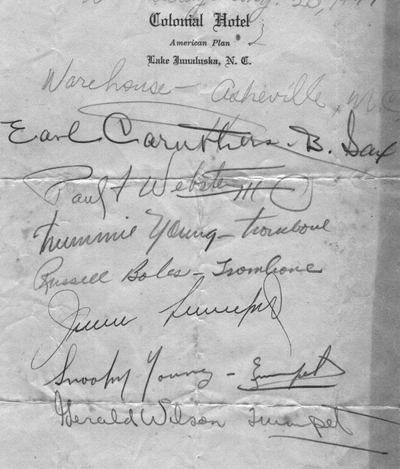 Colonial Hotel
American Plan
Lake Junaluska, N. C.
Warehouse - Asheville, N.C.
Earl Caruthers - B. Sax
Paul F Webster
Trummie Young - trombone
Russell Boles - Trombone
Snooky Young - Trumpet
Gerald Wilson Trumpet